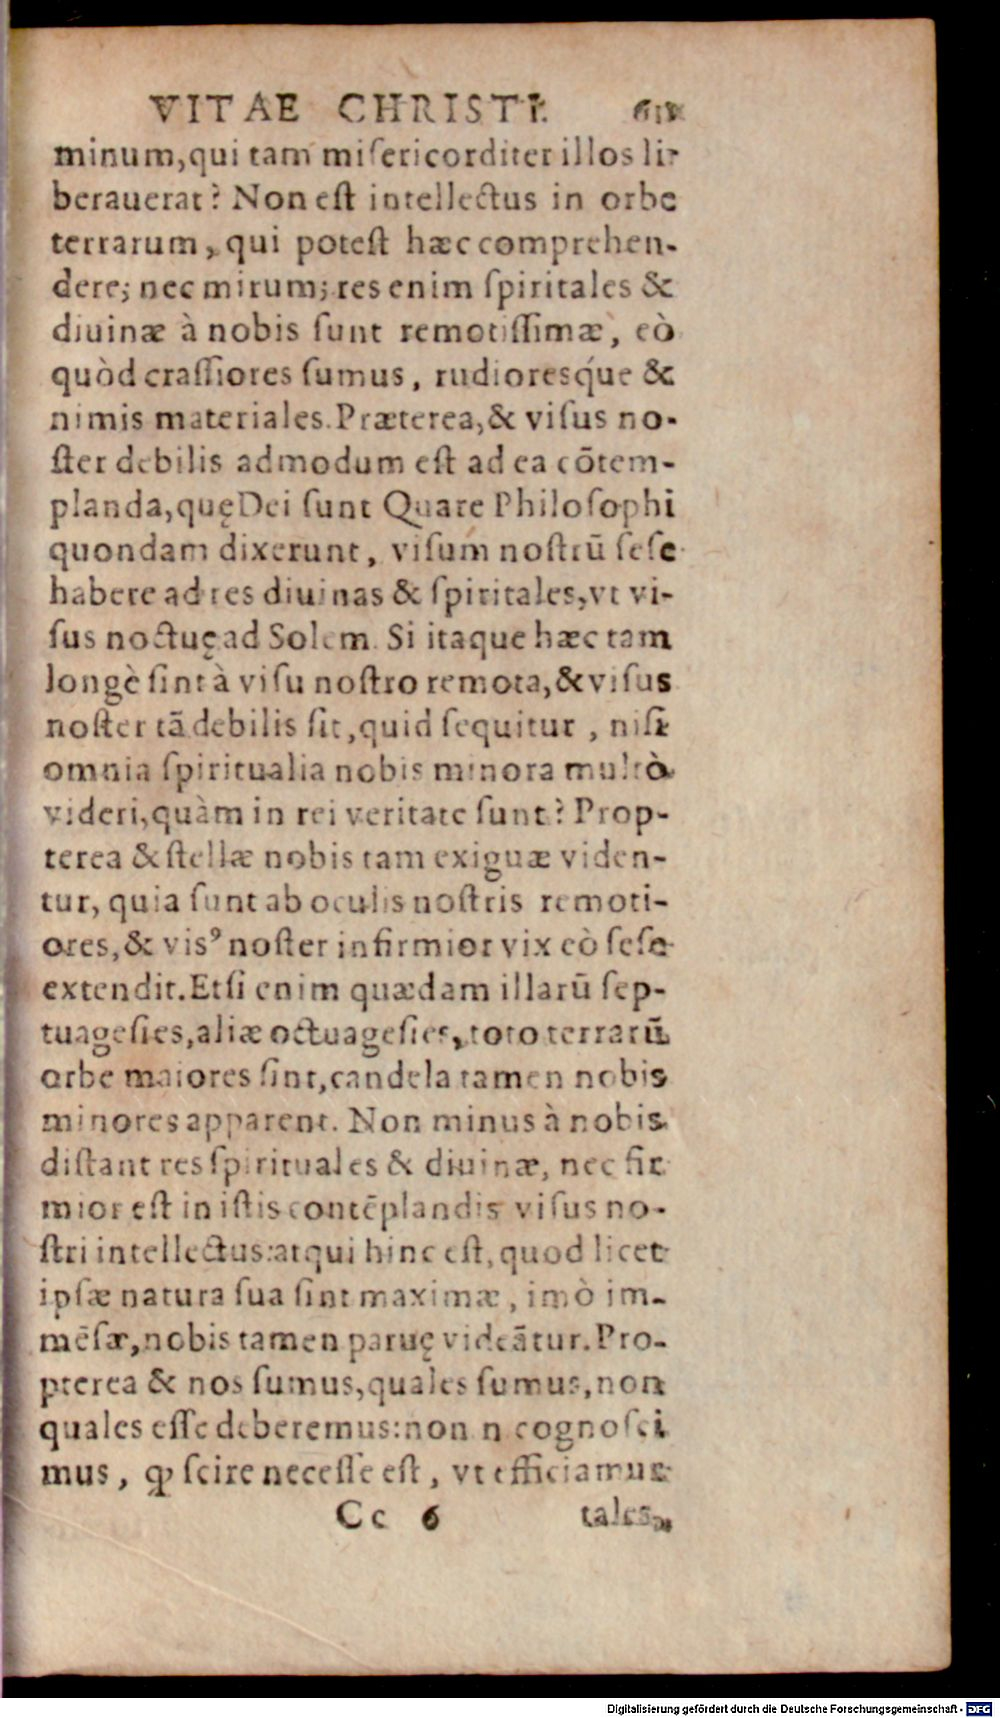 VITAE CHRISTI.
minum, qui tam miſericorditer illos li-
berauerat? Non eſt intellectus in orbe
terrarum, qui poteſt hæc comprehen-
dere; nec mirum; res enim ſpiritales &
diuinæ à nobis ſunt remotiſſimæ, eò
quòd craſſiores ſumus, rudioresq́ue &
nimis materiales. Præterea, & viſus no-
ſter debilis admodum eſt ad ea cōtem-
planda, quę Dei ſunt Quare Philoſophi
quondam dixerunt, viſum noſtrū ſeſe
habere ad res diuinas & ſpiritales, vt vi-
ſus noctuę ad Solem. Si itaque hæc tam
longè ſint à viſu noſtro remota, & viſus
noſter tā debilis ſit, quid ſequitur, niſi
omnia ſpiritualia nobis minora multò
videri, quàm in rei veritate ſunt? Prop-
terea & ſtellæ nobis tam exiguæ viden-
tur, quia ſunt ab oculis noſtris remoti-
ores, & visꝰ noſter infirmior vix eò ſeſe
extendit. Etſi enim quædam illarū ſep-
tuageſies, aliæ octuageſies, toto terrarū
orbe maiores ſint, candela tamen nobis
minores apparent. Non minus à nobis
diſtant res ſpirituales & diuinæ, nec fir
mior eſt in iſtis contēplandis viſus no-
ſtri intellectus: atqui hinc eſt, quod licet
ipſæ natura ſua ſint maximæ, imò im-
mēſæ, nobis tamen paruę videātur. Pro-
pterea & nos ſumus, quales ſumus, non
quales eſſe deberemus: non n cognoſci
mus, ꝙ ſcire neceſſe eſt, vt efficiamur
Cc 6 tales,
Digitalisierung gefördert durch die Deutsche Forschungsgemeinschaft - DFG